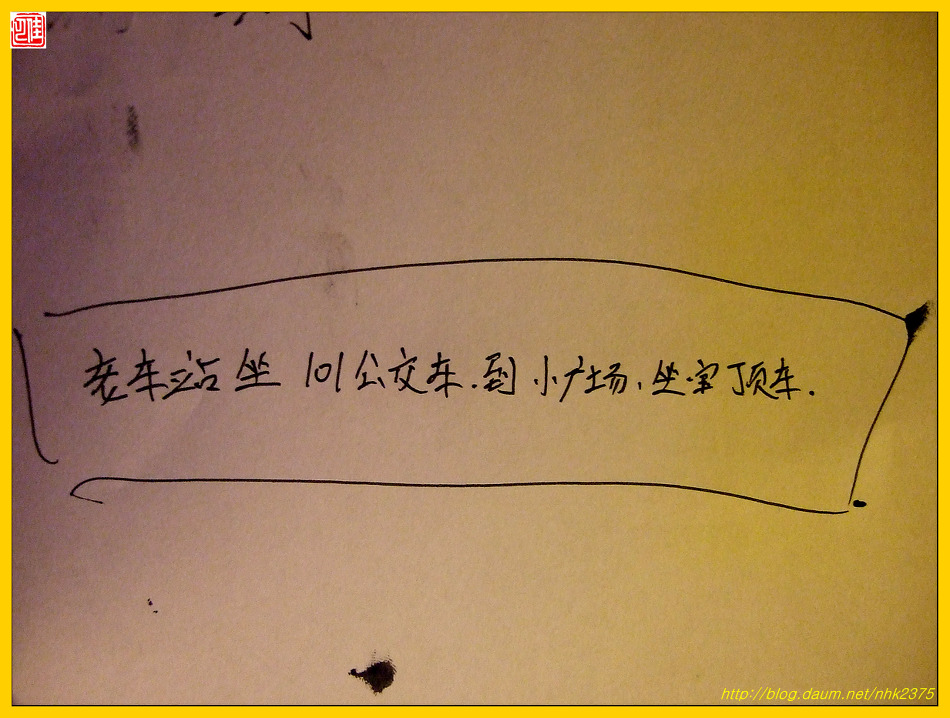 老车站坐 101公交车.到 小广场、坐宝顶车.
http://blog.daum.net/nhk2375